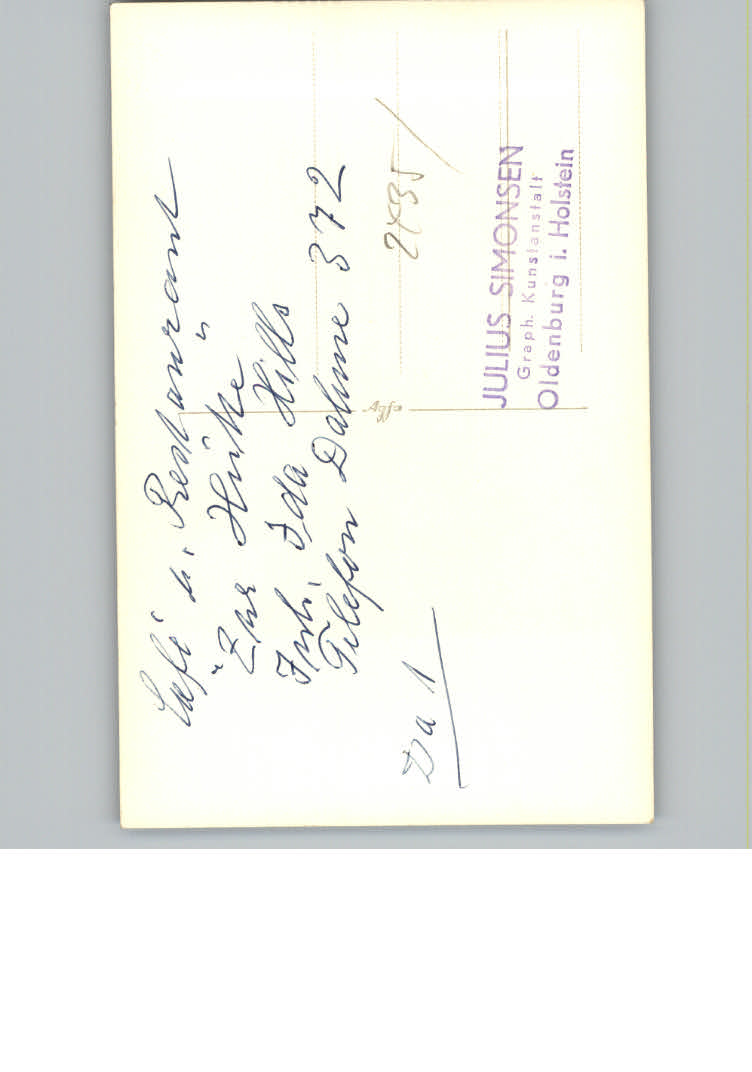 Café u. Restaurant
"Zur Hütte"
Inh. Ida Hills
Telefon Dahme 372
Da 1
2835/
Agfa
JULIUS SIMONSEN
Graph. Kunstanstalt
Oldenburg i. Holstein